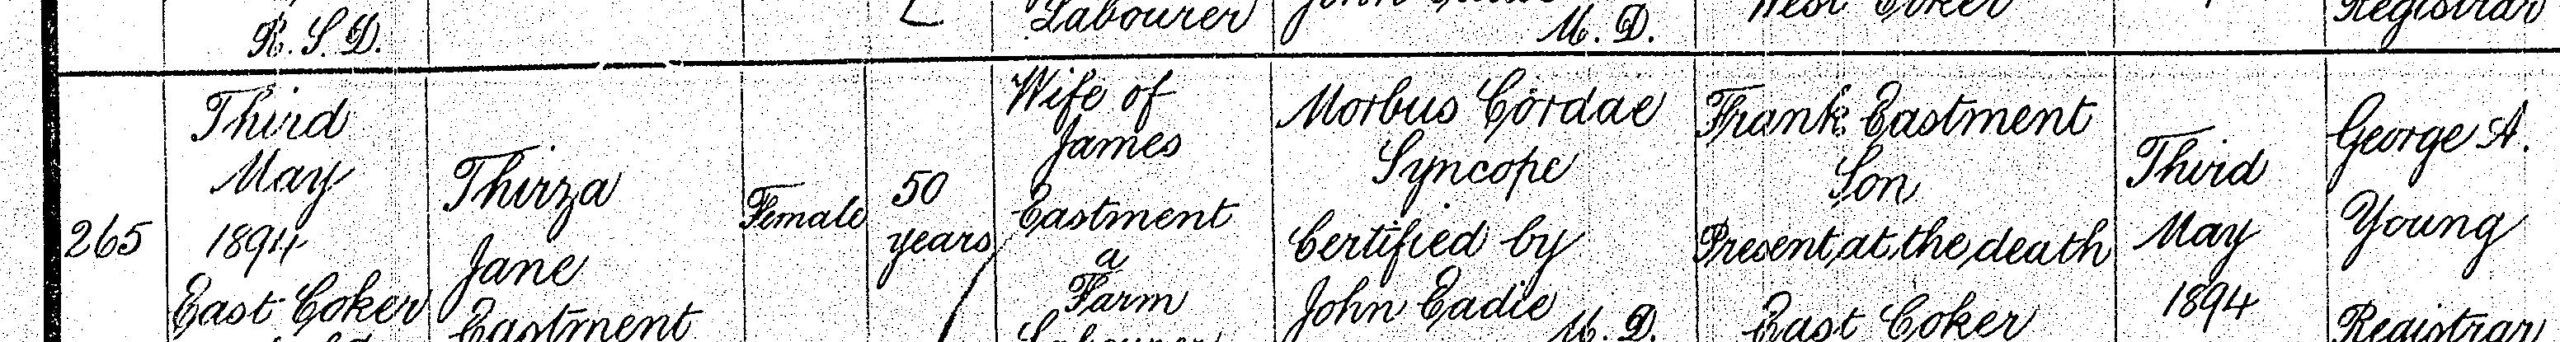 R.S.D.
Labourer
M.D.
West Coker
Registrar
265
Third
May
1894
East Coker
Thirza
Jane
Eastment
Female
50
years
Wife of
James
Eastment
a
Farm
Labourer
Morbus Cordae
Syncope
Certified by
John Eadie
M.D.
Frank Eastment
Son
Present at the death
East Coker
Third
May
1894
George A.
Young
Registrar